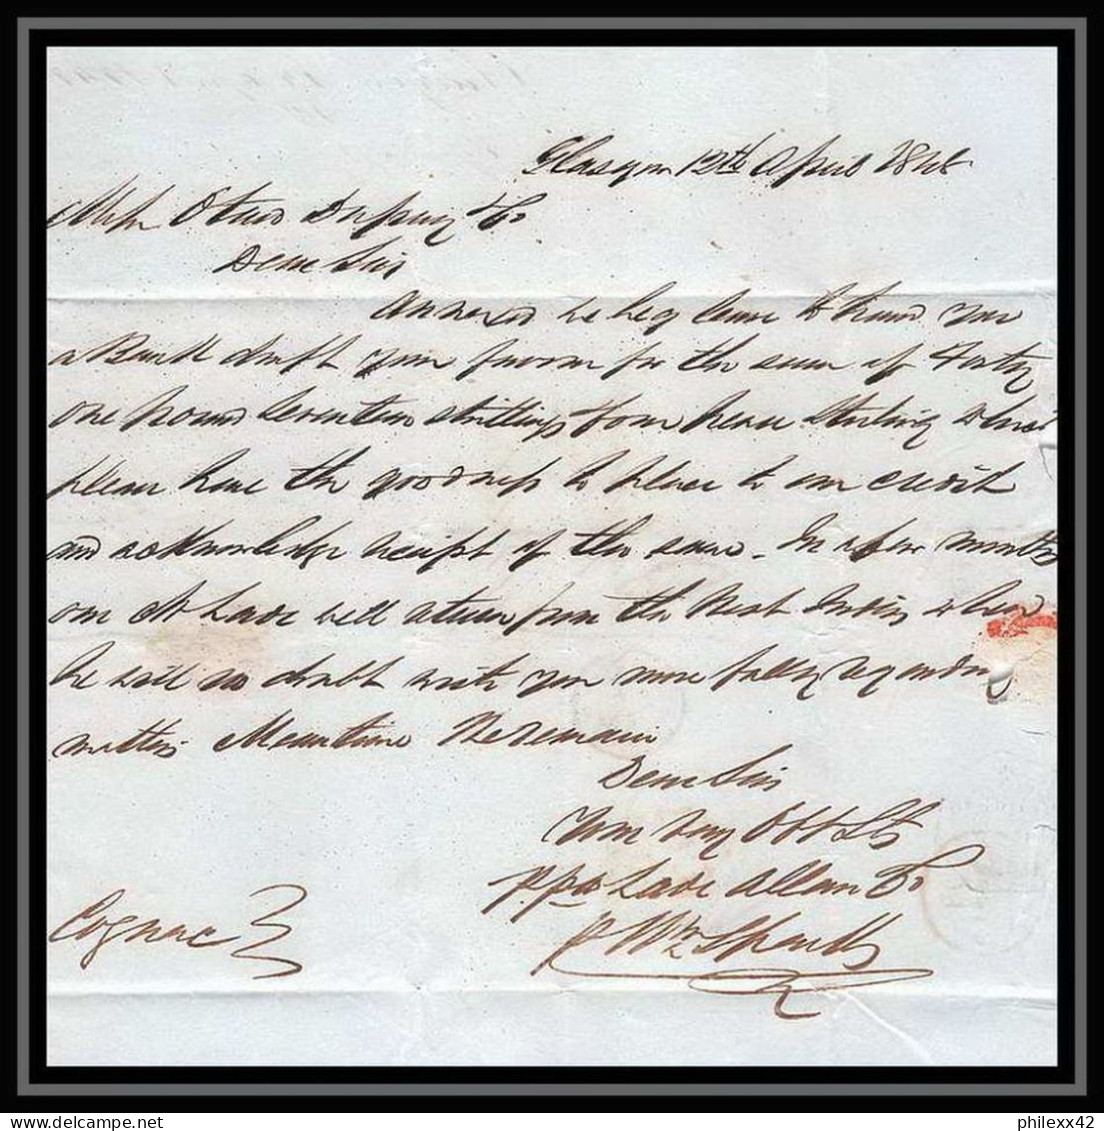 Glasgow 12th April 1848
Messrs Otard Dupuy & Co
Dear Sirs
Annexed we beg leave to hand you
a Bank draft your favour for the sum of Forty
one Pound Seventeen shillings & four pence Sterling which
please have the goodness to place to our credit
and acknowledge receipt of the same - In a few months
our Mr Lade will return from the West Indies when
he will no doubt write you more fully regarding
matters Meantime We remain
Dear Sirs
Your very Obt Sts
p pro Lade Allan & Co
Wm
Cognac
philexx42